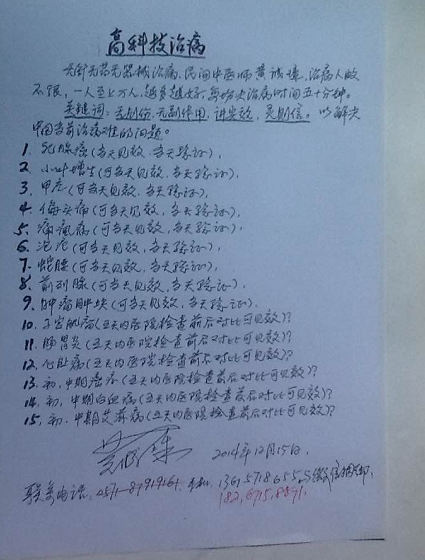 高科技治病
无针无药无器械治病,民间中医师黄诚建,治病人数
不限,一人至上万人,越多越好,每次治病时间五十分钟。
关键词:无创伤,无副作用,讲实效,灵则信。以解决
中国当前治病难的问题。
1. 乳腺癌(当天见效,当天验证),
2. 小叶增生(可当天见效,当天验证),
3. 甲亢(可当天见效,当天验证),
4. 偏头痛(可当天见效,当天验证),
5. 痛风病(可当天见效,当天验证),
6. 疮(可当天见效,当天验证),
7. 腰(可当天见效,当天验证),
8. 前列腺(可当天见效,当天验证),
9. 肿瘤肿块(可当天见效,当天验证),
10. 子宫肌瘤(五天内医院检查前后对比可见效)?
11. 肺炎(五天内医院检查前后对比可见效)?
12. 心脏病(五天内医院检查前后对比可见效)?
13. 初,中期癌症(五天内医院检查前后对比可见效)?
14. 初,中期白血病(五天内医院检查前后对比可见效)?
15. 初,中期艾滋病(五天内医院检查前后对比可见效)?
2014年12月15日,
联系电话,0571-87919161 手机,13615718655